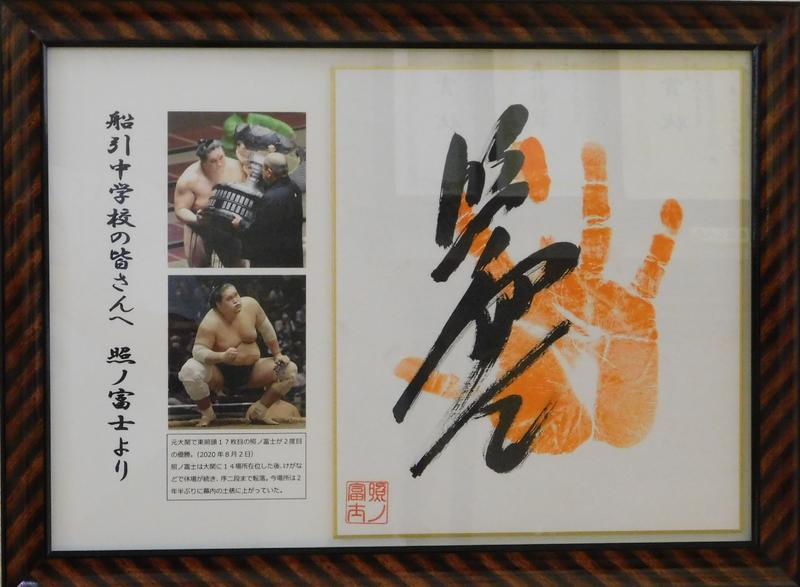 船引中学校の皆さんへ　照ノ富士より
元大関で東前頭１７枚目の照ノ富士が２度目
の優勝。（2020年８月２日）
照ノ富士は大関に１４場所在位した後、けがな
どで休場が続き、序二段まで転落。今場所は２
年半ぶりに幕内の土俵に上がっていた。
照ノ
富士